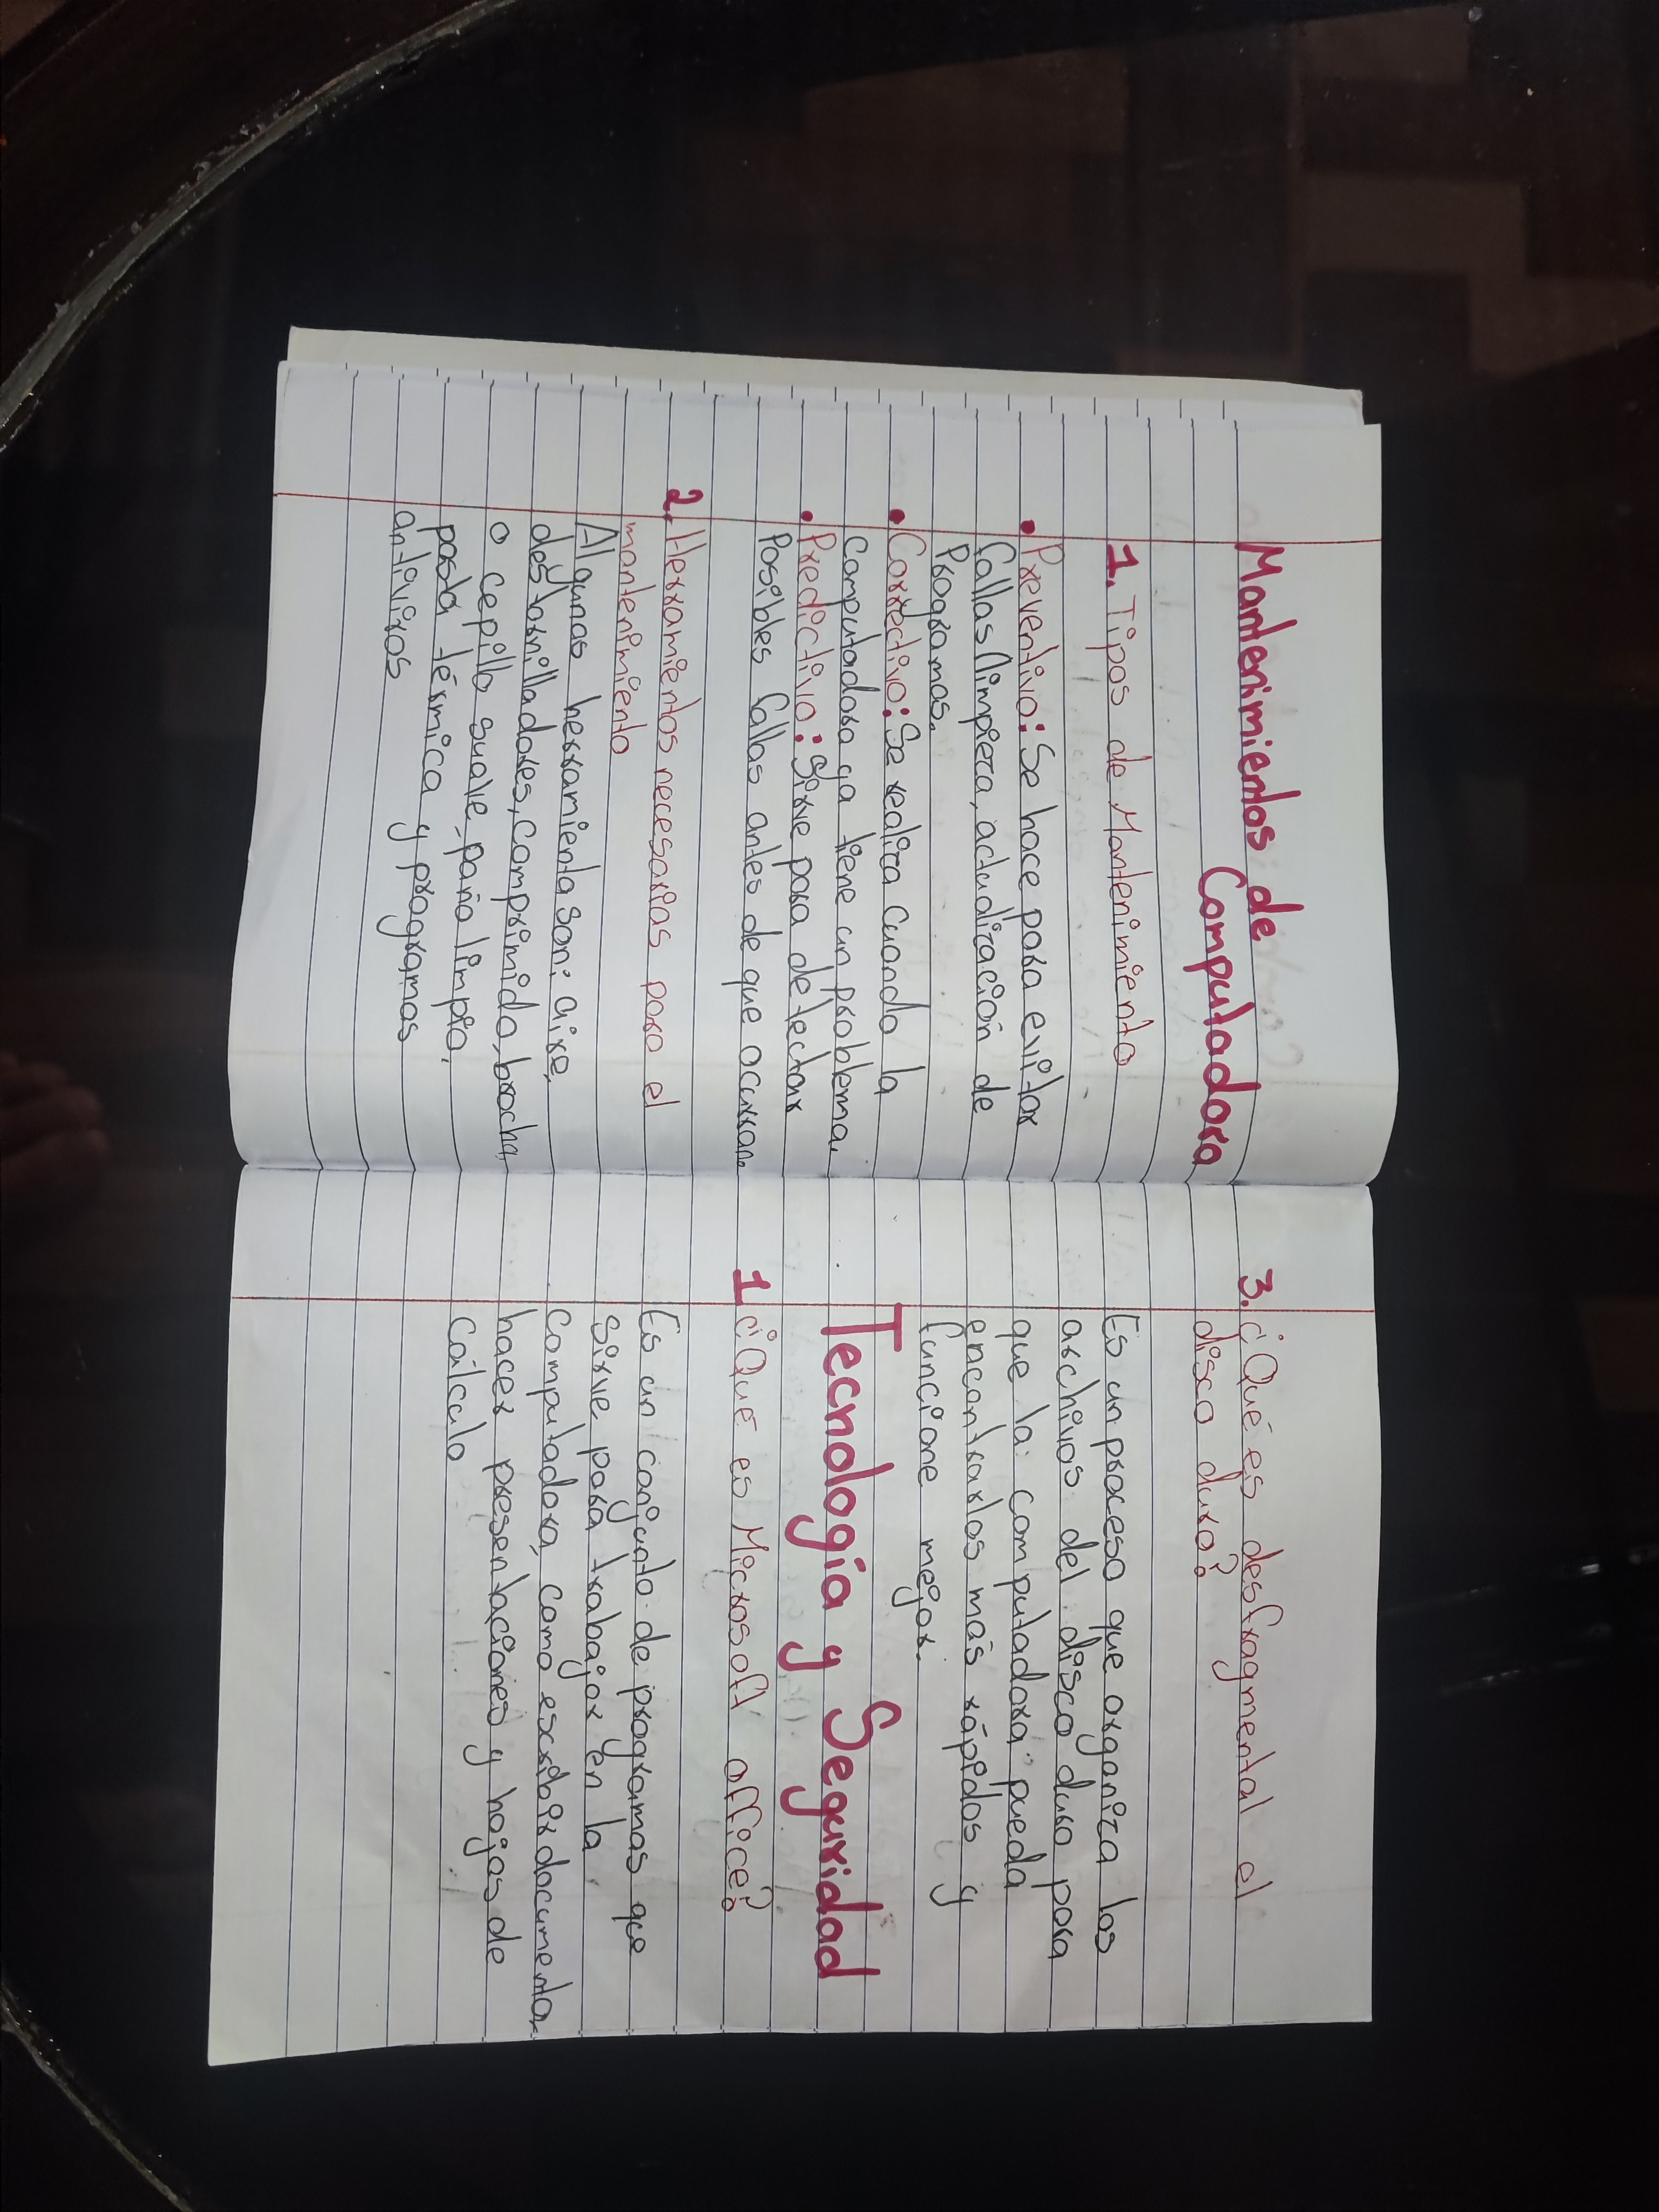 Mantenimientos de
Computadora
1. Tipos de Mantenimiento
• Preventivo: Se hace para evitar
fallas (limpieza, actualización de
Programas.
• Correctivo: Se realiza cuando la
Computadora ya tiene un problema.
• Predictivo: Sirve para detectar
Posibles fallas antes de que ocurran.
2. Herramientos necesarias para el
mantenimiento
Algunas herramienta son: aire,
destornilladores, comprimido, brocha,
o cepillo suave, paño limpio,
pasta térmica y programas
antiviros
3. ¿Qué es desfragmental el
disco duro?
Es un proceso que organiza los
archivos del disco duro para
que la computadora pueda
encontrarlos más rápidos y
funcione mejor.
Tecnologia y Seguridad
1 ¿Qué es Microsoft office?
Es un conjunto de programas que
sirve para trabajar en la
computadora, como escribir documentar
hacer presentaciones y hojas de
Cálculo